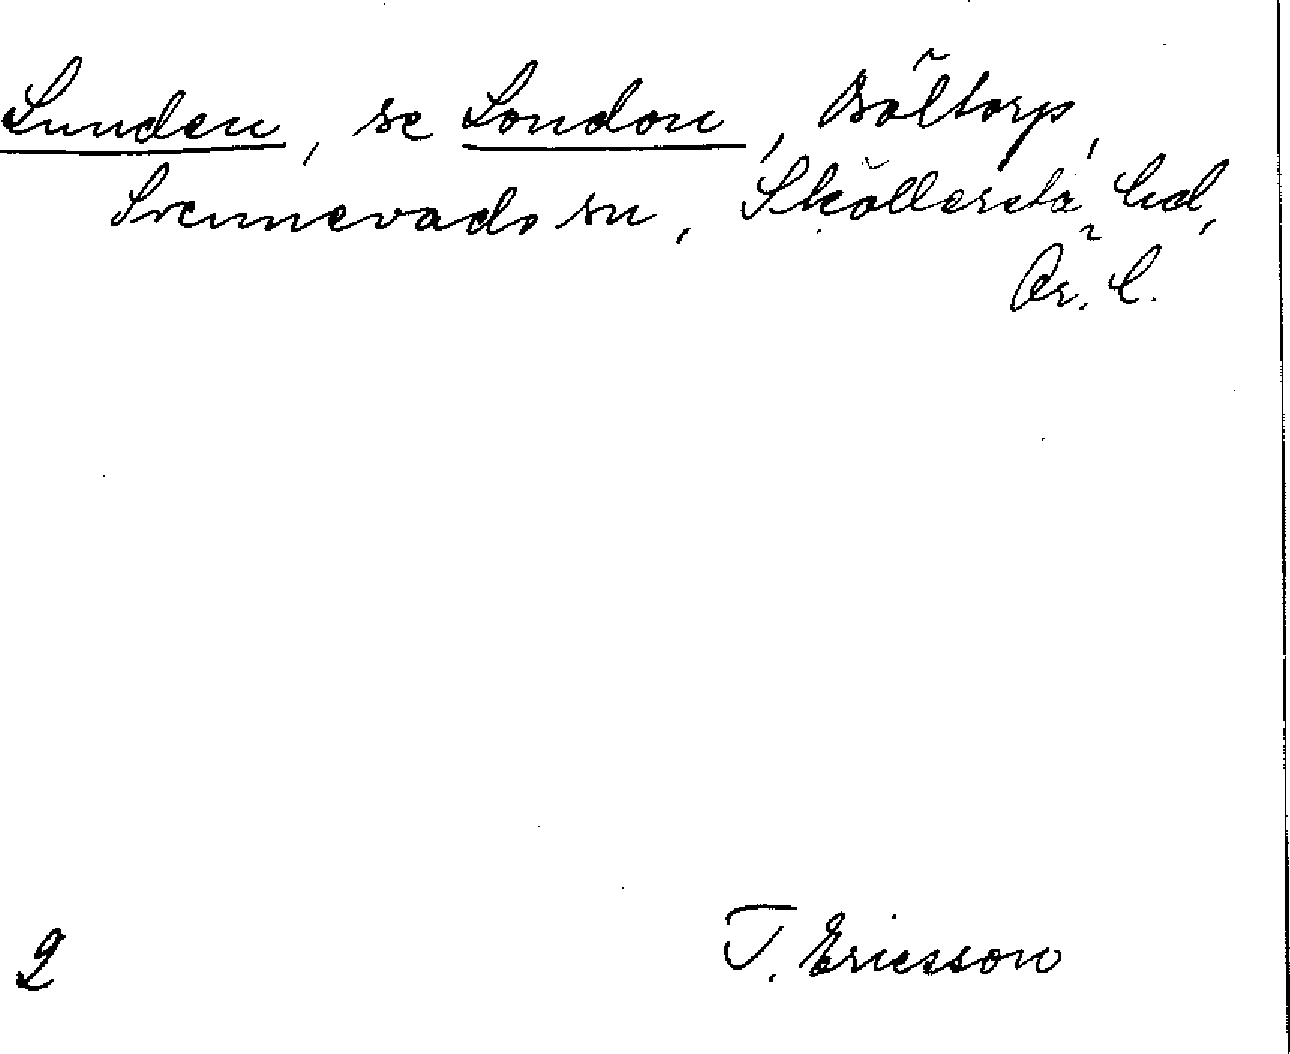 Lunden, se London, Böltorp,
Svennevads sn, Sköllersta hd,
Ör. l.
T. Ericsson
2